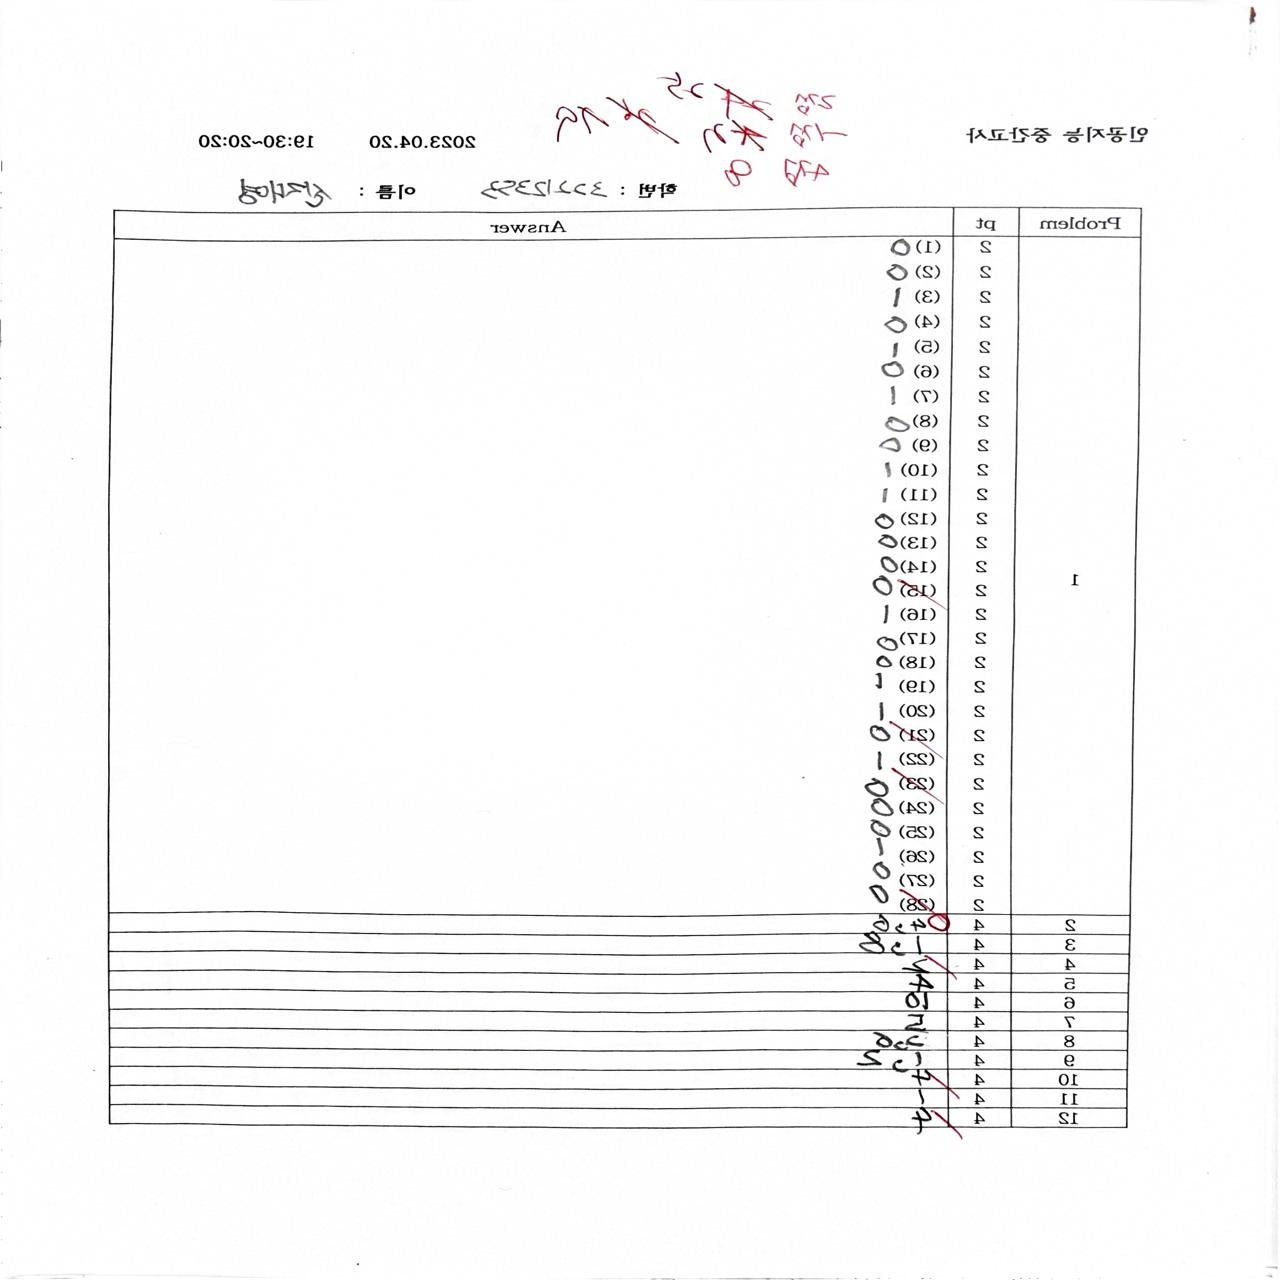 인공지능 중간고사 2023.04.20 19:30~20:20
학번 : 32212353 이름 :
Problem pt Answer
1 2 (1) 0
2 (2) 0
2 (3) 1
2 (4) 0
2 (5) 1
2 (6) 0
2 (7) 1
2 (8) 0
2 (9) 0
2 (10) 1
2 (11) 1
2 (12) 0
2 (13) 0
2 (14) 0
2 (15) 0
2 (16) 1
2 (17) 0
2 (18) 0
2 (19) 1
2 (20) 1
2 (21) 0
2 (22) 1
2 (23) 0
2 (24) 0
2 (25) 0
2 (26) 1
2 (27) 0
2 (28) 0
2 4
3 4
4 4
5 4 4
6 4 5
7 4 2
8 4
9 4
10 4
11 4 1
12 4